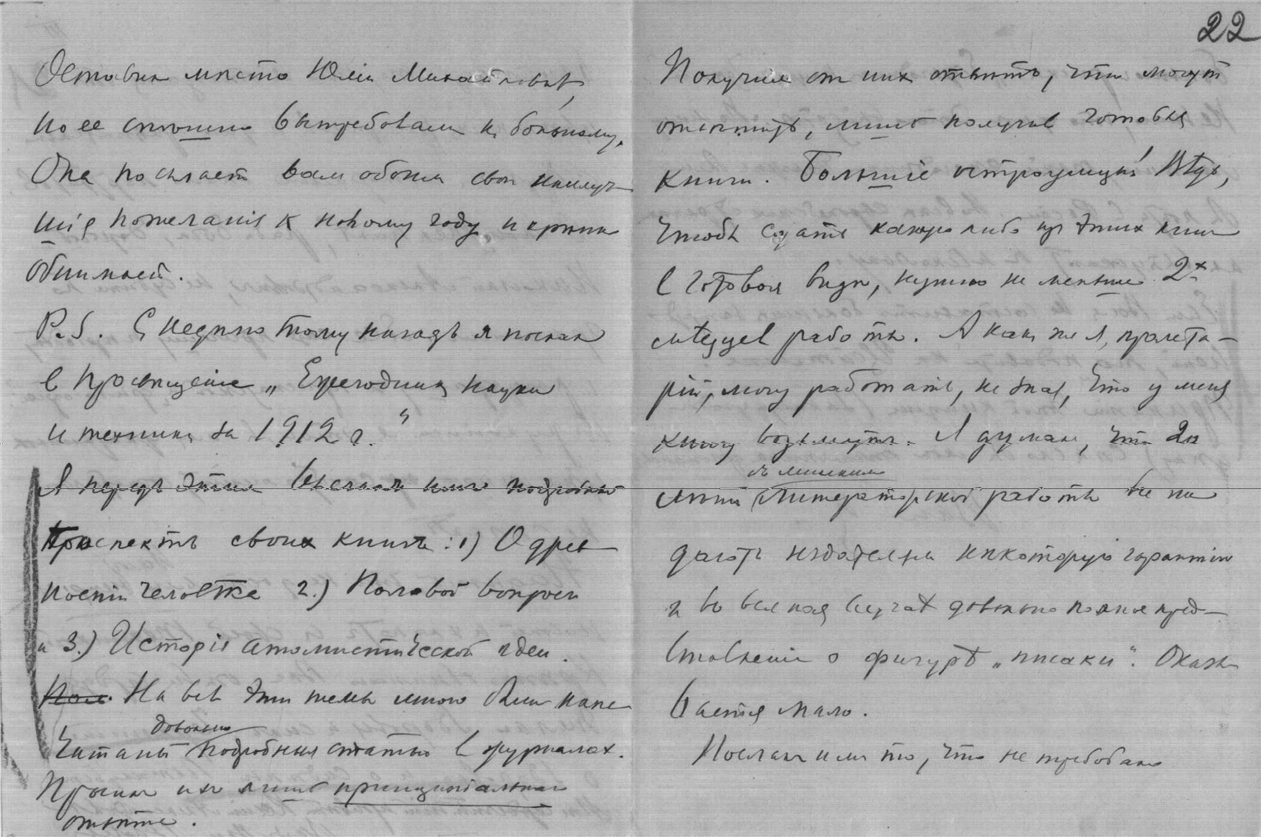 Оставил место Юлии Михайловне,
но ее спешно вытребовали к больному.
Она посылает вам обоим свои наилуч-
шiя пожеланiя к новому году и крепко
обнимает.
P.S. С неделю тому назад я послал
в Просвещение „Ежегодник науки
и техники за 1912 г.“
Я перед этим выслал им подробный
проспектъ своих книг: 1) О древ-
ности человѣка 2.) Половой вопрос
и 3.) Исторiя атомистической идеи.
На всѣ эти темы мною были напе-
довольно
чатаны подробныя статьи в журналах.
Просил их лишь принципiальнаго
отвѣта.
22
Получил от них отвѣтъ, что могут
отвѣтить, лишь получив готовыя
книги. Большiе остроумцы! Вѣдь,
чтобы сдать какую либо из этих книг
в готовом виде, нужно не меньше 2х
мѣсяцев работы. А как же я, пролета-
рiй, могу работать, не зная, что у меня
книгу возьмутъ. Я думал, что 20
съ лишним
лѣтъ литераторской работы все же
дают издателям некоторую гарантiю
и во всяком случаѣ довольно полное пред-
ставленiе о фигурѣ „писаки“. Оказы-
вается мало.
Послал им то, что не требовало